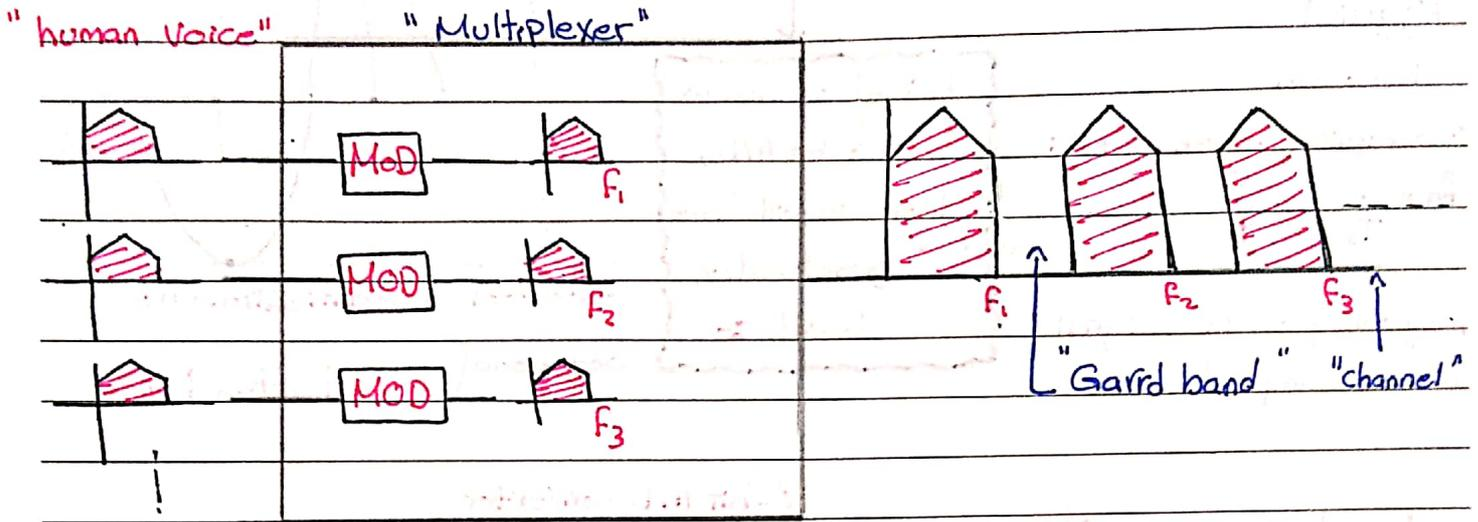 "human voice"
"Multiplexer"
MOD
F₁
MOD
F₂
MOD
F₃
F₁
F₂
F₃
"Garrd band"
"channel"